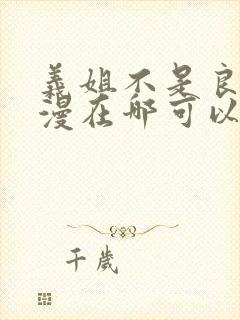 義姐不是良
漫在哪可以
千歲